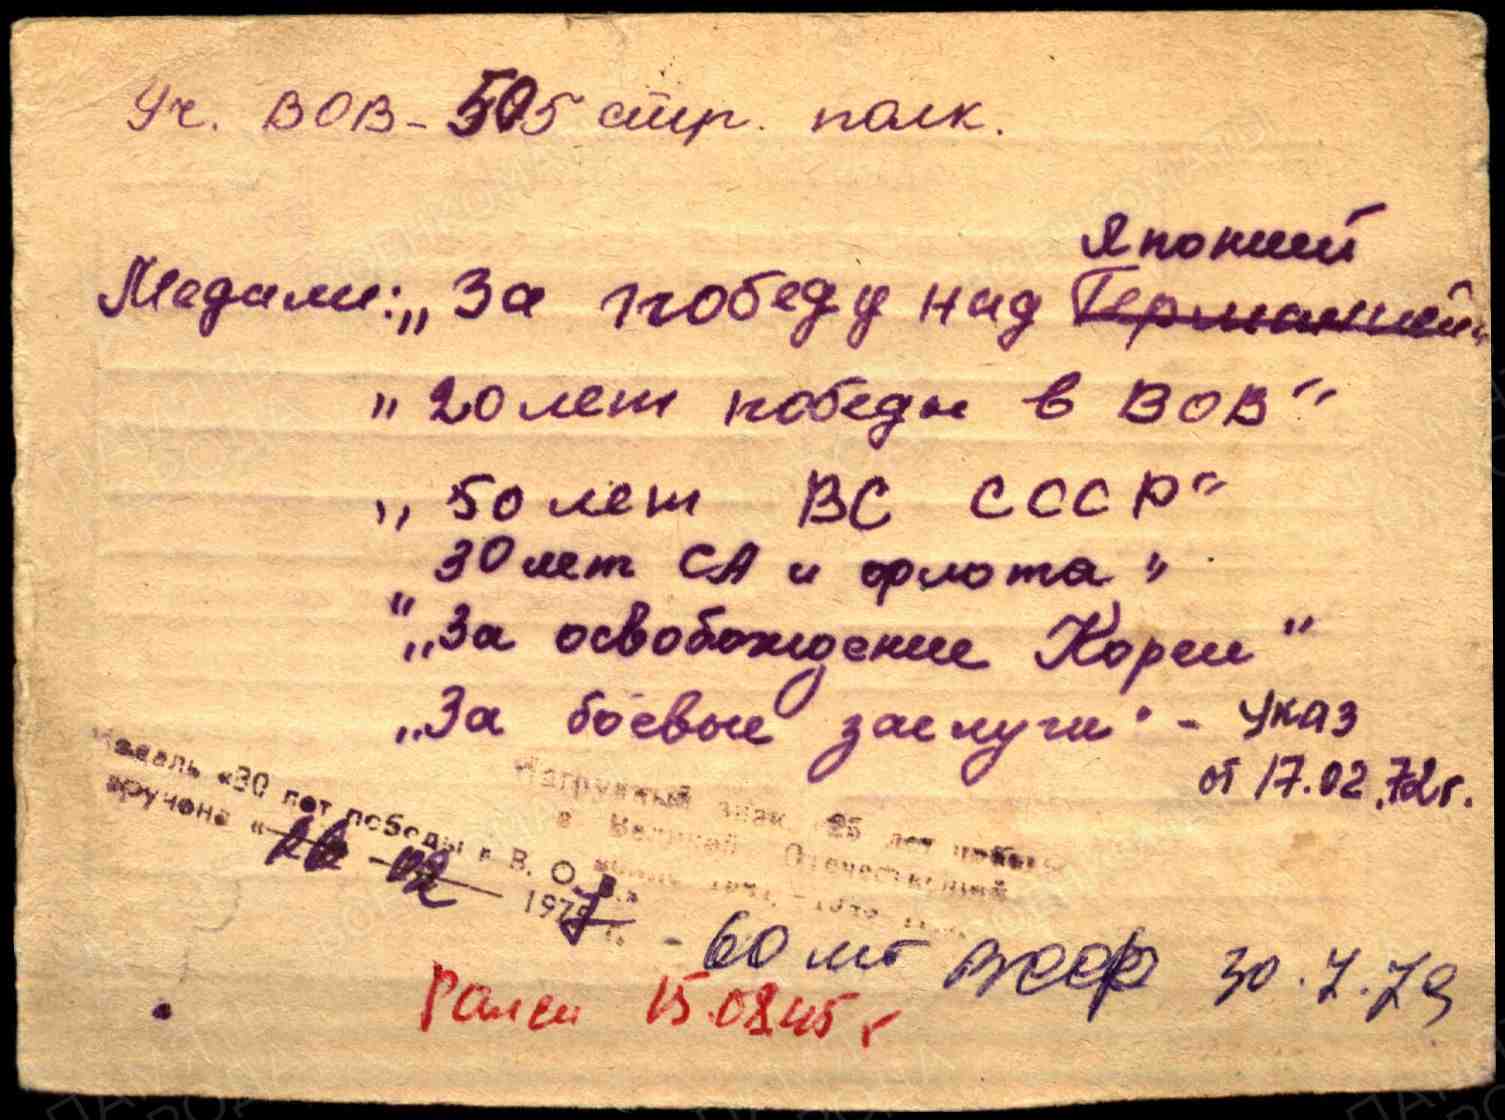 Уч. ВОВ - 505 стр. полк.
Японией
Медали: „За победу над Германией"
„20 лет победы в ВОВ"
„50 лет ВС СССР"
30 лет СА и флота"
"„За освобождение Кореи"
„За боевые заслуги" - Указ
от 17.02.72г.
Медаль «30 лет победы в В. О. В.»
вручена « 26 - 02 197 г.
Нагрудный знак 25 лет победы
в Великой Отечественной
войне 1941-1945
- 60 лет 30.7.79
Ранен 15.08.45 г